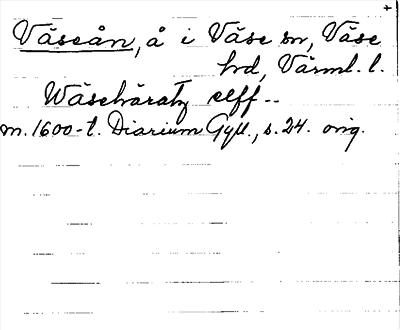 Väseån, å i Väse sn, Väse
hd, Värml. l.
Wäsehäratz elff--
m. 1600-t. Diarium Gyll., s. 24. orig.